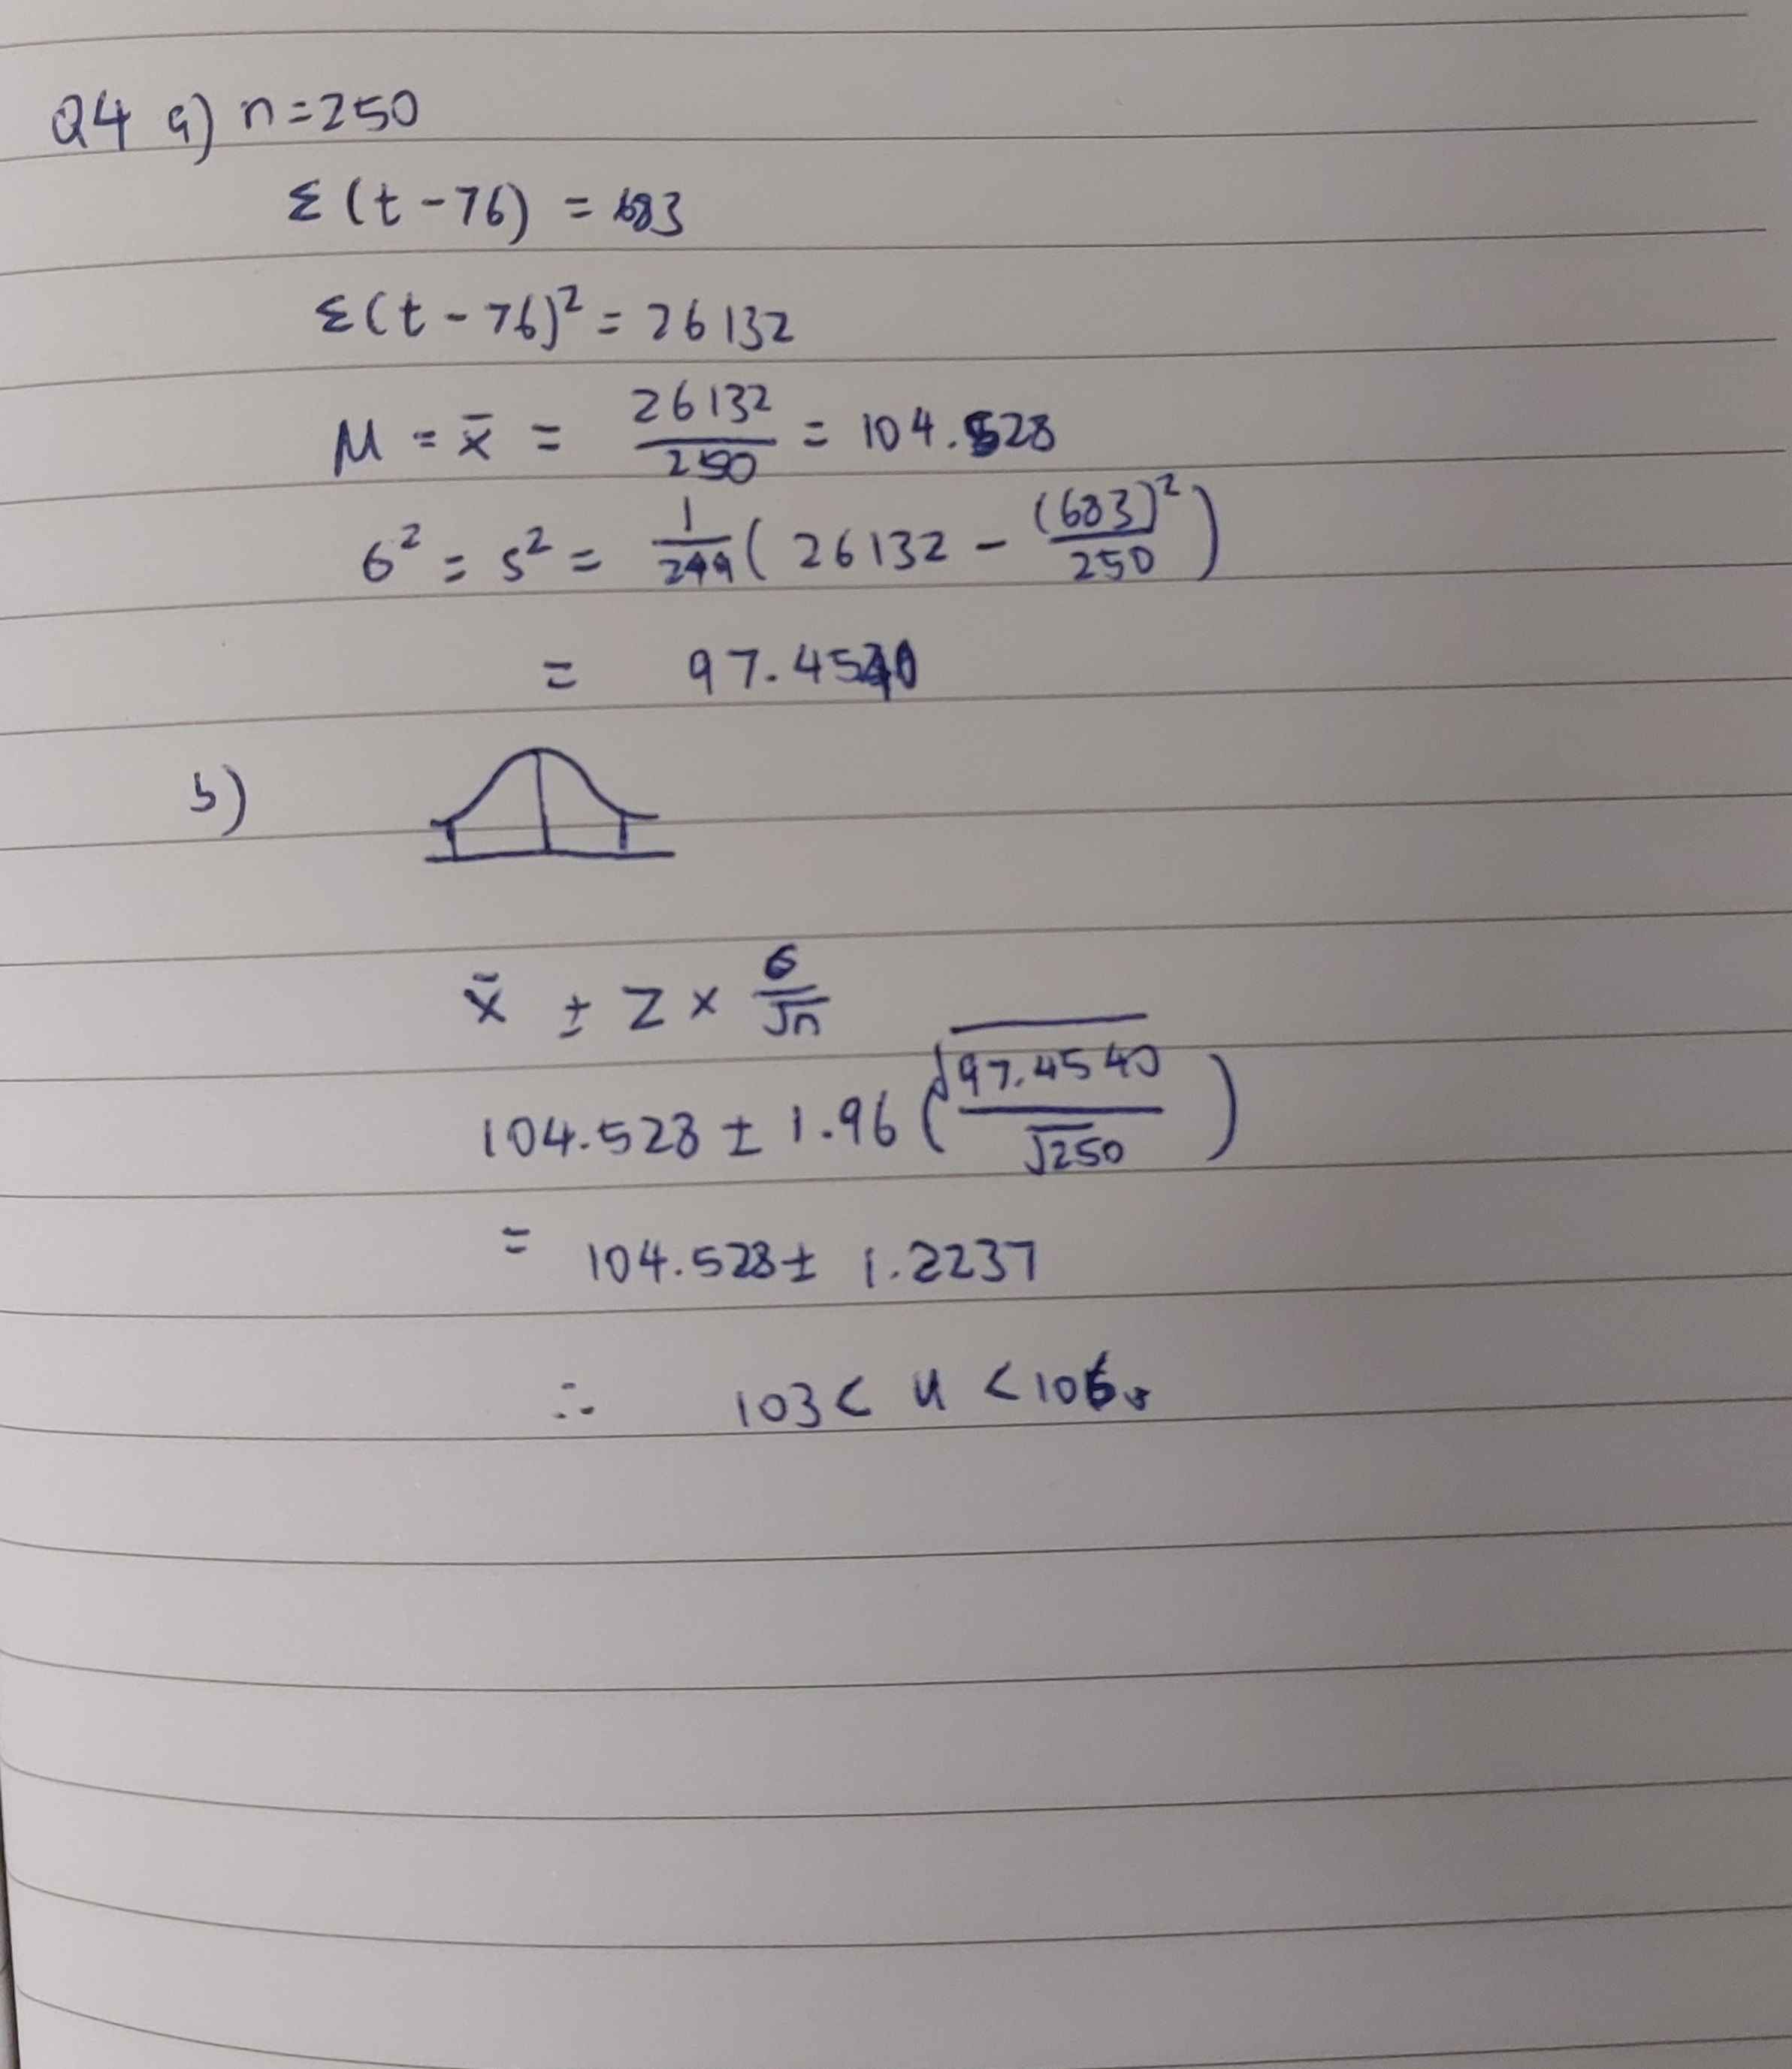 Q4 a) n=250
Σ(t-76) = 683
Σ(t-76)² = 26132
M = x̄ = 26132/250 = 104.528
σ² = s² = 1/249 ( 26132 - (683)²/250 )
= 97.4540
b)
x̄ ± Z × σ/√n
104.528 ± 1.96 ( √97.4540/√250 )
= 104.528 ± 1.2237
∴ 103 < u < 106.